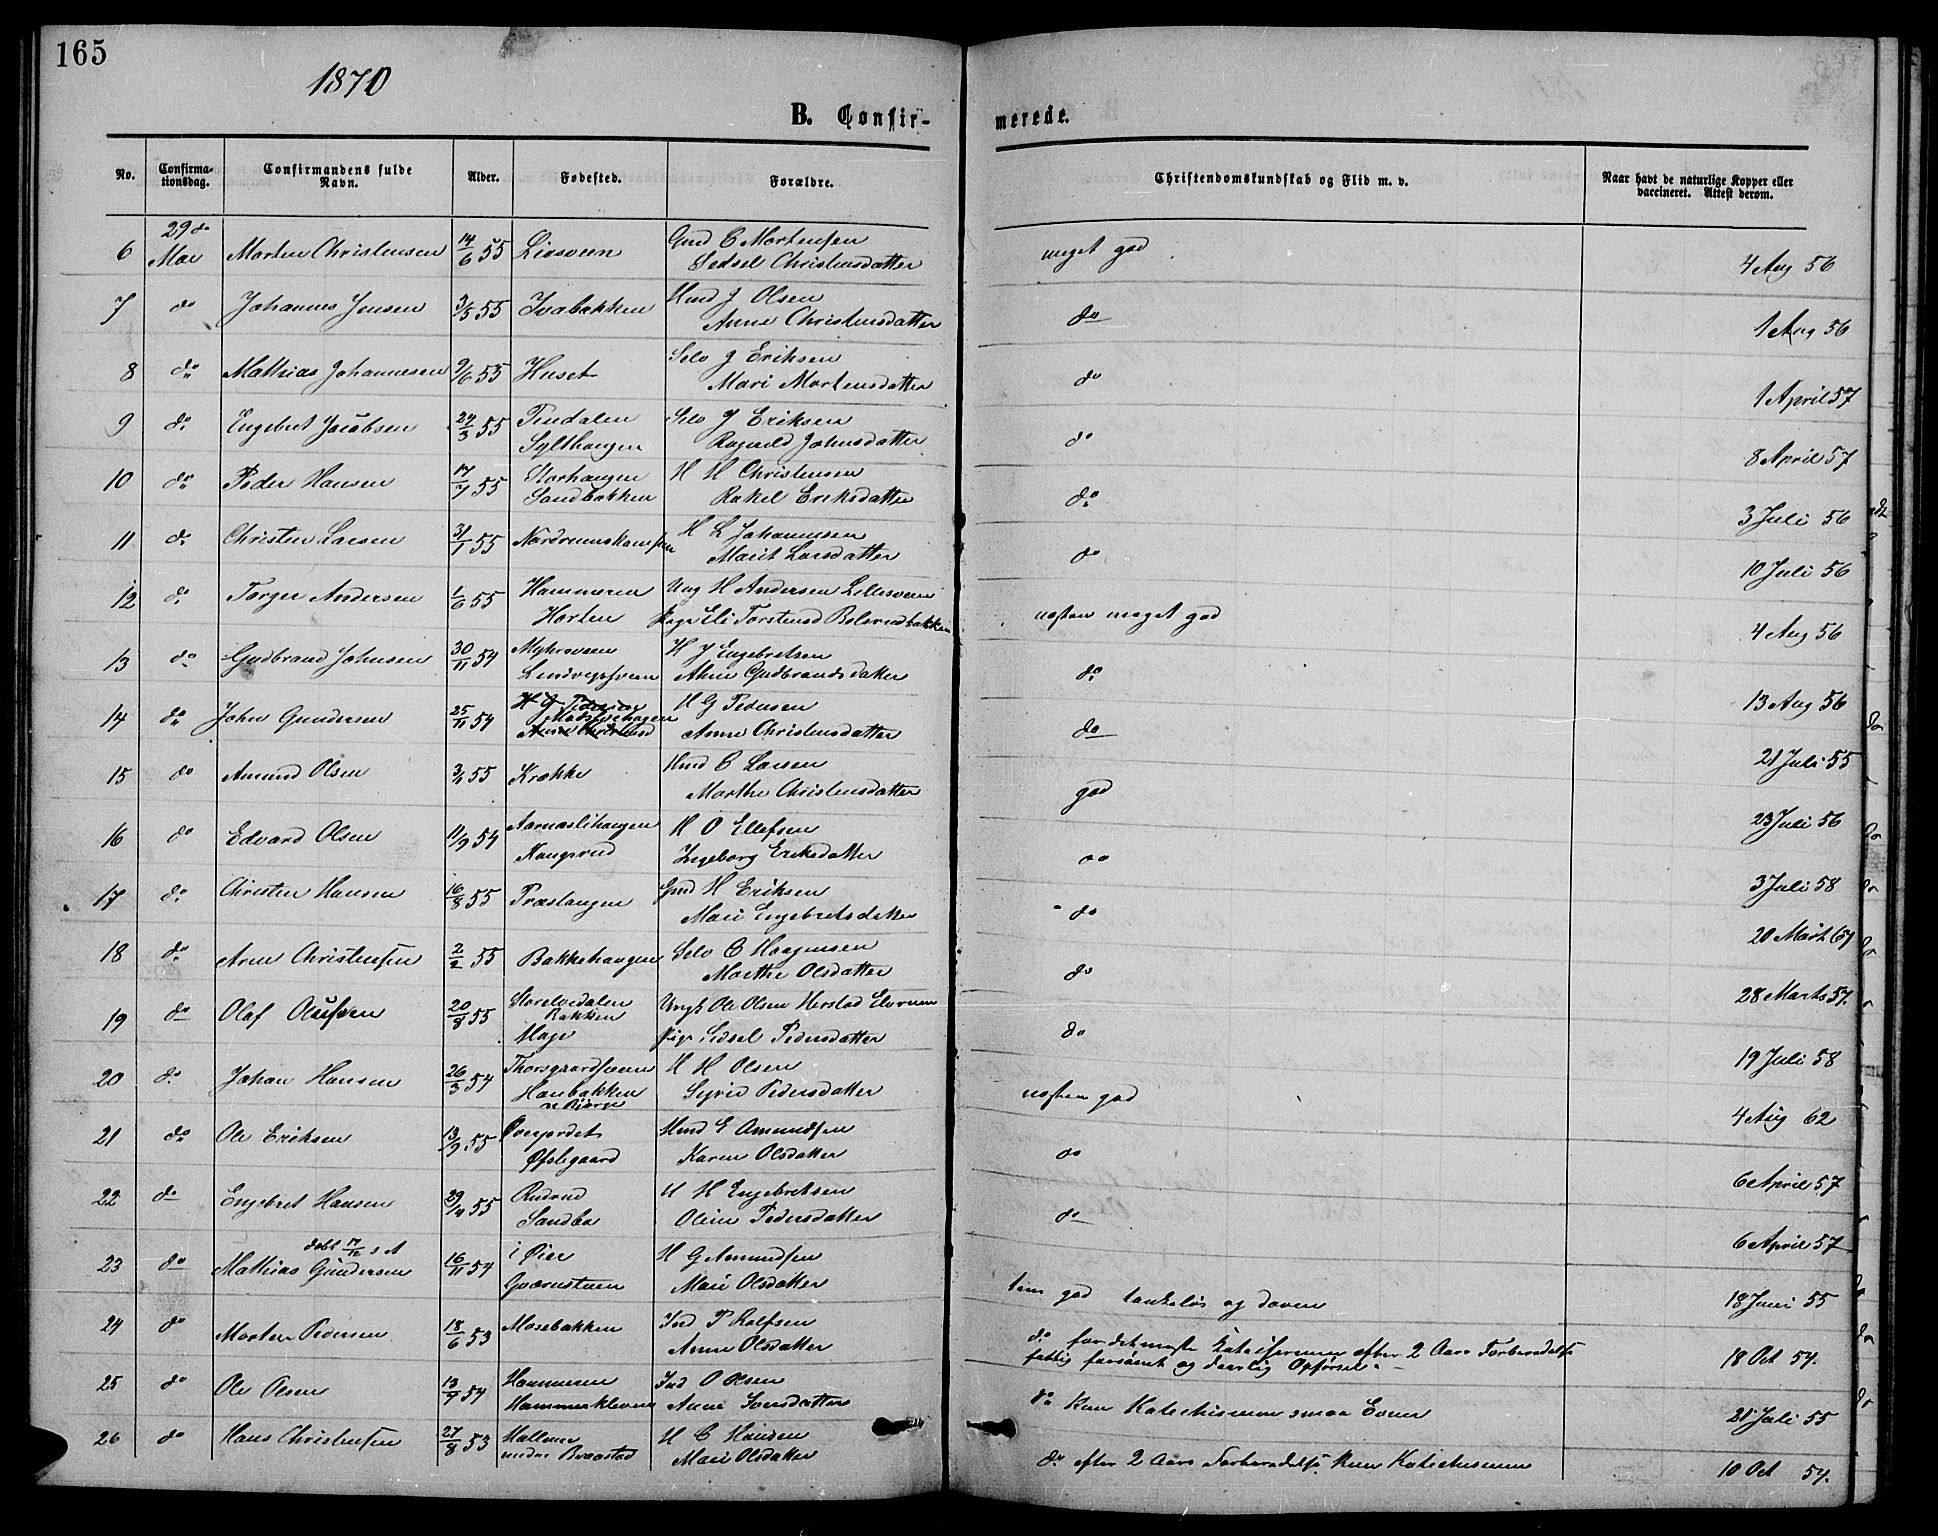 165
1870
B. Confir-
merede.
No. Confirma- tionsdag. Confirmandens fulde Navn. Alder. Fødested. Forældre. Christendomskundskab og Flid m. v. Naar havt de naturlige Kopper eller vaccineret. Attest derom.
6 29de Mai Morten Christensen 14/6 55 Liosveen Gmd C Mortensen meget god 4 Aug 56
Sidsel Christensdatter
7 do Johannes Jensen 3/5 55 Ivabakken Hmd J Olsen do 1 Aug 56
Anne Christensdatter
8 do Mathias Johannesen 9/6 55 Huset Selv J Eriksen do 1 April 57
Mari Mortensdatter
9 do Engebret Jacobsen 24/3 55 Selv J Eriksen do 8 April 57
Sylthaugen Ragnild Johnsdatter
10 do Peder Hansen 17/7 55 Storhaugen H H Christensen do 3 Juli 56
Sandbakken Rakel Eriksdatter
11 do Christen Larsen 31/1 55 H L Johannesen do 10 Juli 56
Marit Larsdatter
12 do Torger Andersen 1/6 55 Hammeren Ung H Andersen Lillesveen næsten meget god 4 Aug 56
Horten Pige Eli Torstensd
13 do Gudbrand Johnsen 30/11 54 Myhrsveen H J Engebretsen do 13 Aug 56
Anne Gudbrandsdatter
14 do John Gundersen 25/11 54 H G Pedersen H G Pedersen do 21 Juli 55
Anne Christensd Anne Christensdatter
15 do Amund Olsen 3/1 55 Krække Hmd O Larsen god 23 Juli 56
Marthe Christensdatter
16 do Edvard Olsen 11/9 54 Aarnæslihaugen H O Ellefsen do 3 Juli 58
Kongsrud Ingeborg Eriksdatter
17 do Christen Hansen 16/8 55 Gmd H Eriksen do 20 Marts
Mari Engebretsdatter
18 do Arne Christensen 2/2 55 Bakkehaugen Selv C Haagensen do 28 Marts 57.
Marthe Olsdatter
19 do Olaf Olufsen 20/8 55 Storelvedalen Ungk Ole Olsen do 19 Juli 58
Bakken
Moge Pige Sidsel Pedersdatter
20 do Johan Hansen 26/3 54 Thorsgaardsveen H H Olsen næsten god 4 Aug 62
Haubakken Sigrid Pedersdatter
21 do Ole Eriksen 13/9 55 Overjordet Hmd E Amundsen do 6 April 57
Øfslegaard Karen Olsdatter
22 do Engebret Hansen 29/4 55 Rudrud H H Engebretsen do 6 April 57
Sandbo Oline Pedersdatter
døbt 17/12 s A
23 do Mathias Gundersen 16/11 54 i Øier H G Amundsen tem god tankeløs og doven 18 Juni 55
Qværnstuen Mari Olsdatter
24 do Morten Pedersen 18/6 53 Mosebakken Ind P Rolfsen do for det meste Katechismen efter 2 Aars Forberedelse 18 Oct 54.
Anne Olsdatter fattig forsømt og daarlig Opførsel
25 do Ole Olsen 13/7 54 Hammeren Ind O Olsen do kun Katechismen smaa Evner 21 Juli 55
Hammerkleven Anne Iversdatter
26 do Hans Christensen 27/8 53 H C Hansen do efter 2 Aars Forberedelse kun Katechismen 10 Oct 54.
under Braastad Mari Olsdatter